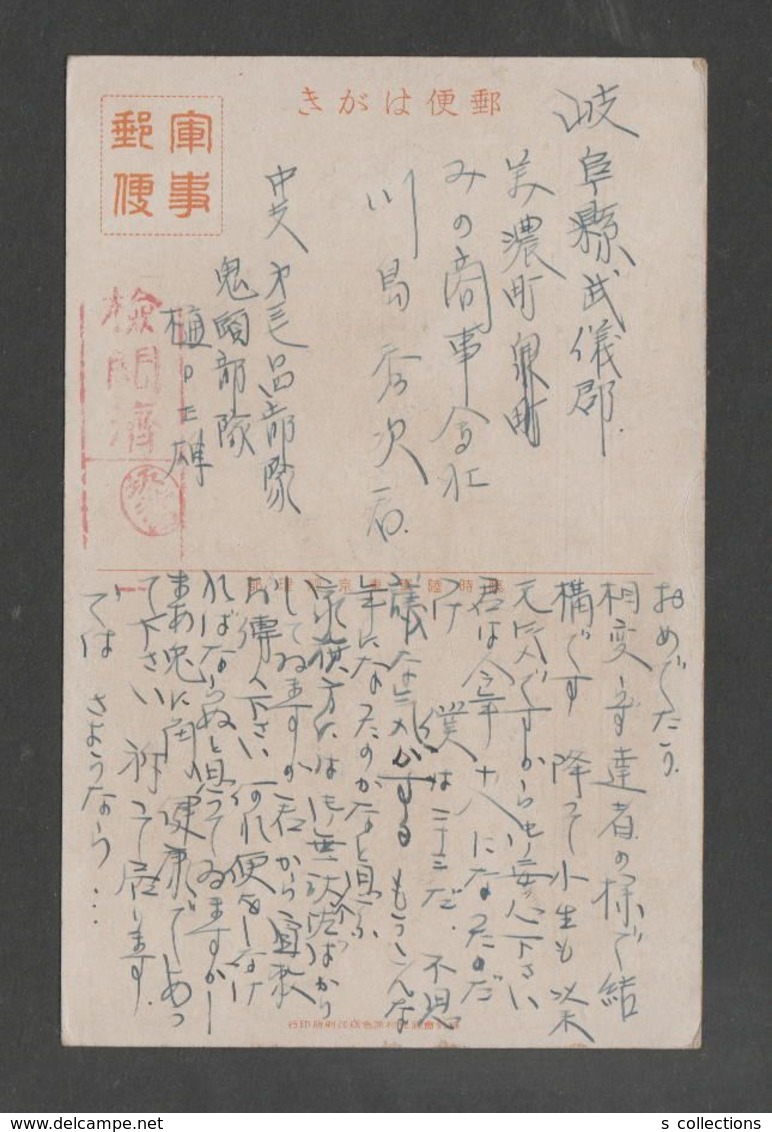 郵便はがき
軍事
郵便
岐阜縣武儀郡
美濃町泉町
みの商事会社
川島秀次君
中支
部隊
鬼頭部隊
樋口
検閲済
おめでたう
相変らず達者の様で結
構です 降て小生も以来
元気ですから御安心下さい
君は今年十八になったのだ
ね 僕は二十三だ.不思
議な気がする もうこんな
年になったのかなと思ふ
家族方には御無沙汰ばかり
してゐますが君から宜敷
お傳へ下さい 何れ便をしなけ
ればならぬと思ってゐますが
まあ兎に角 健康であっ
て下さい 祈って居ます.
では さようなら...
delcampe.net
s_collections